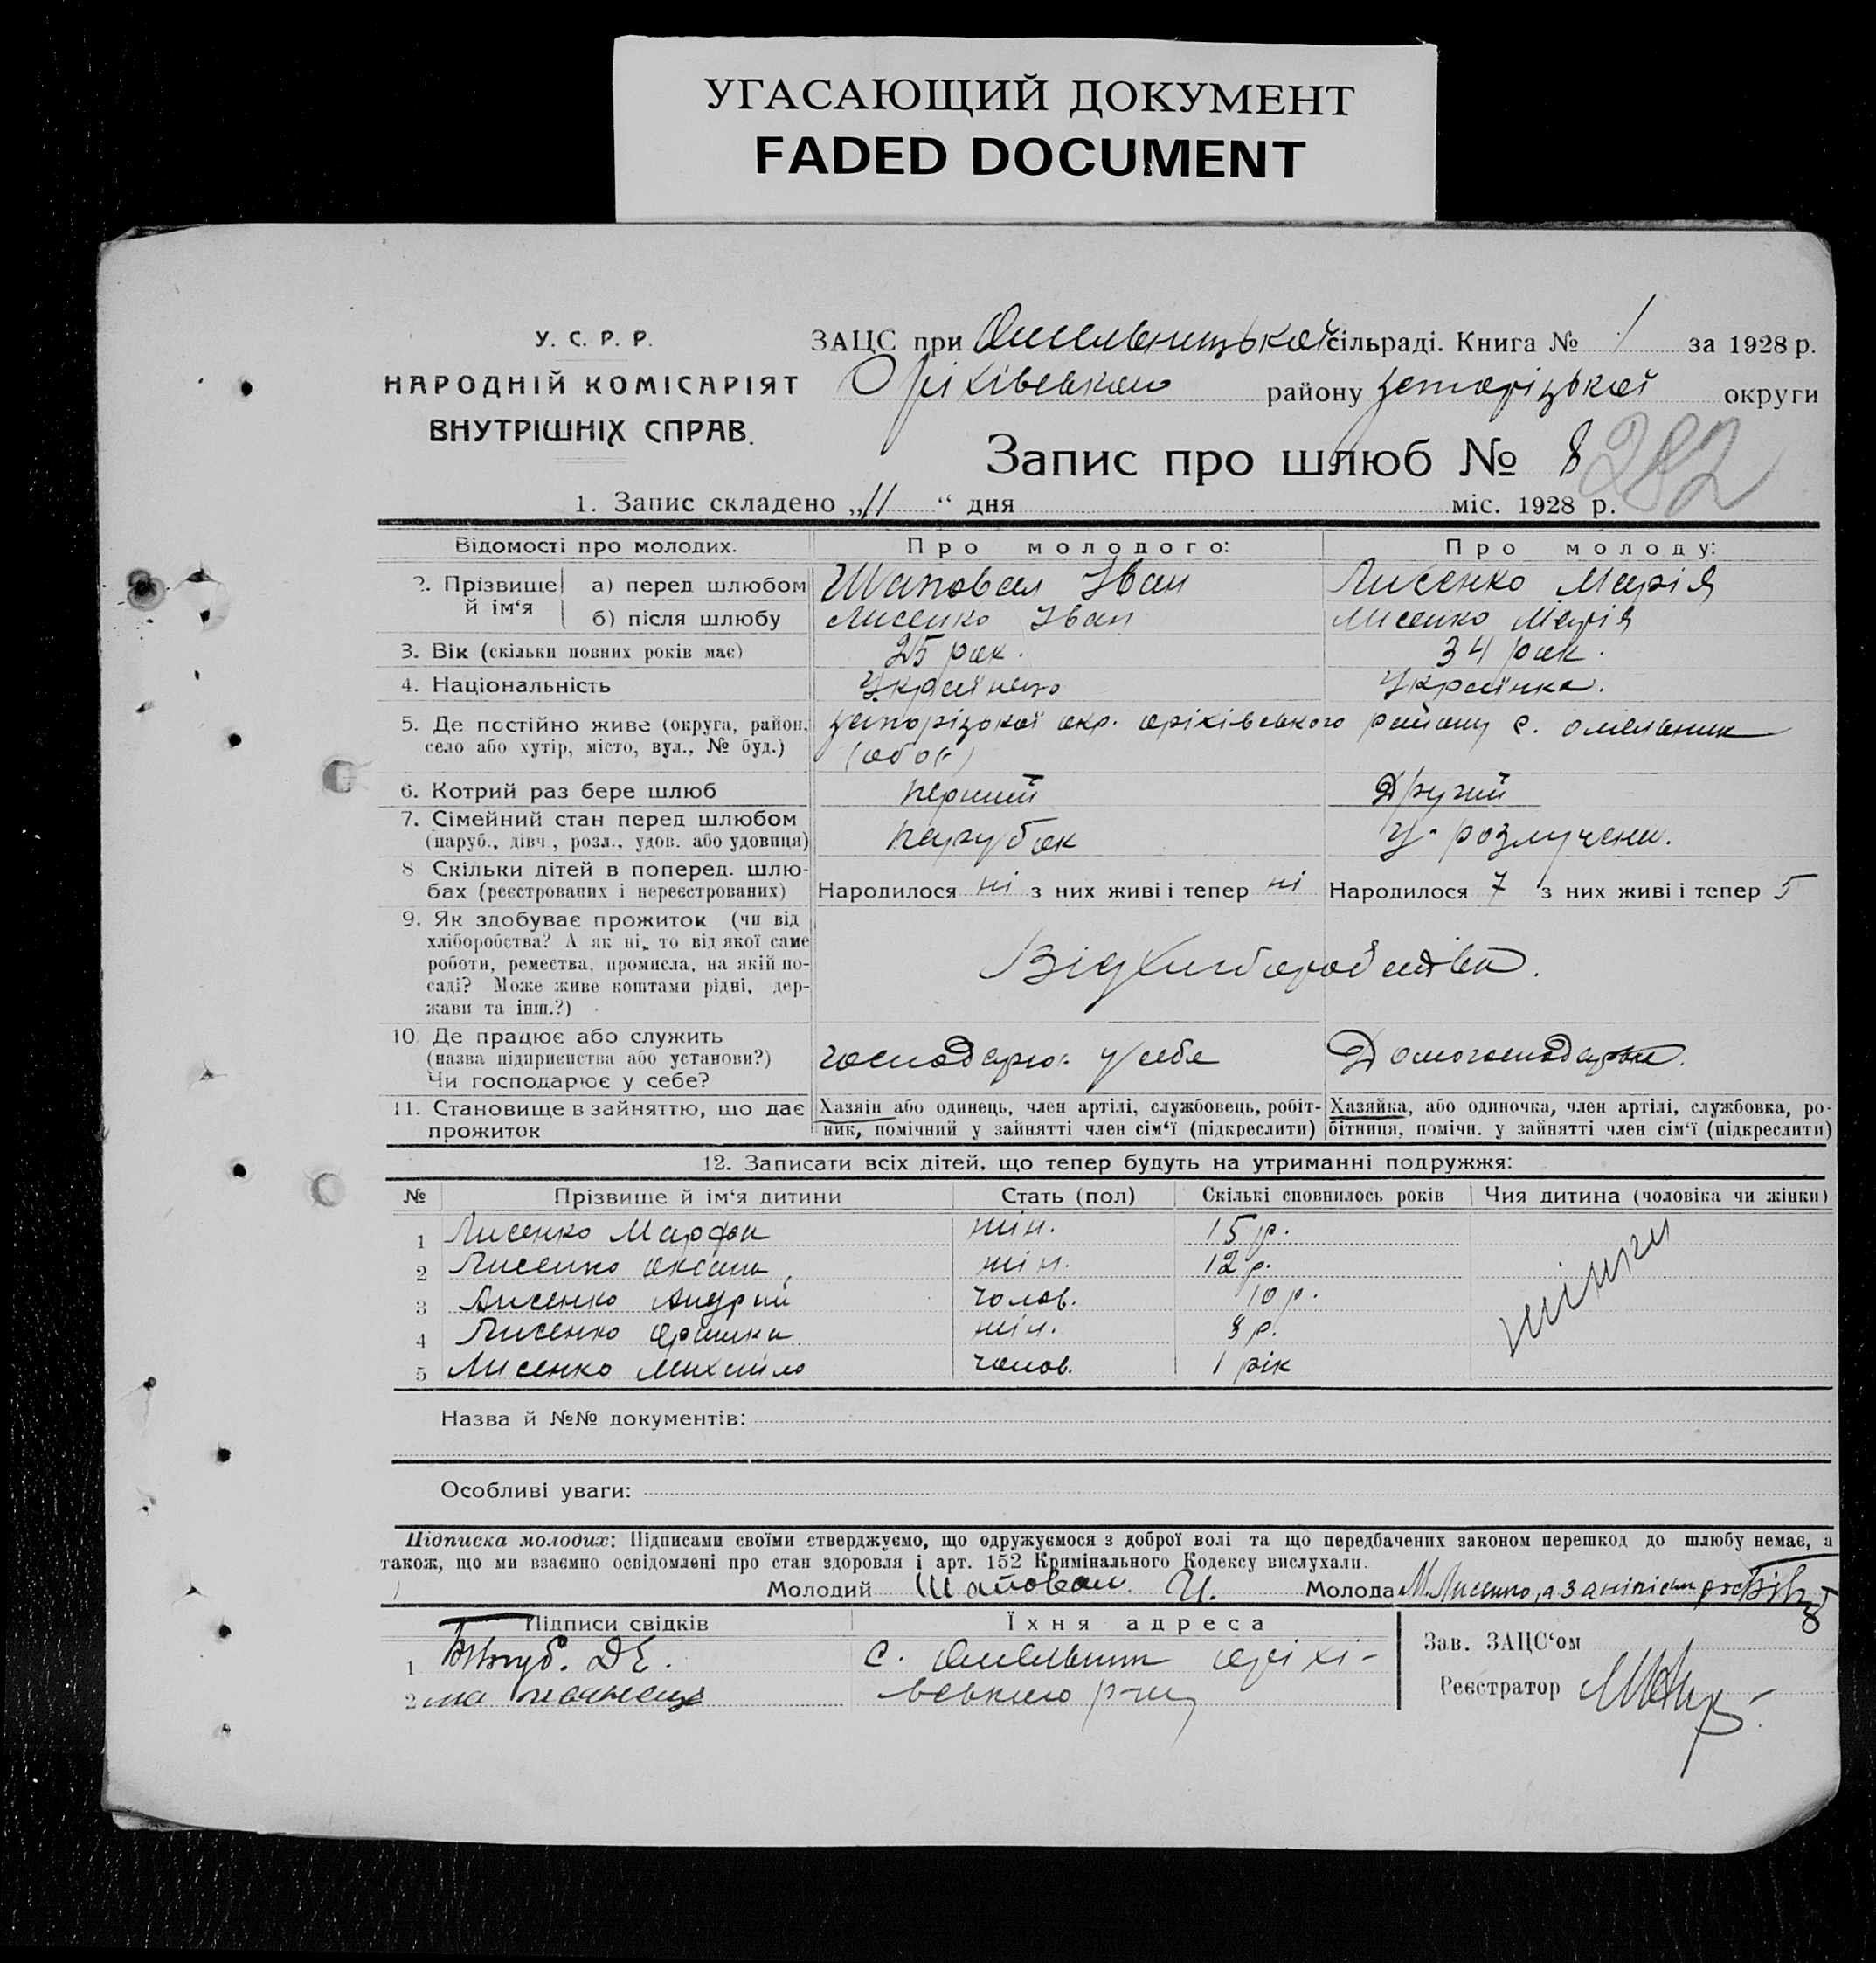 УГАСАЮЩИЙ ДОКУМЕНТ
FADED DOCUMENT
У. С. Р. Р.
НАРОДНІЙ КОМІСАРІЯТ
ВНУТРІШНІХ СПРАВ.
ЗАЦС при Омельницької сільраді. Книга № 1 за 1928 р.
Оріхівського району Запоріцької округи
Запис про шлюб № 8
282
1. Запис складено „11“ дня міс. 1928 р.
Відомості про молодих. Про молодого: Про молоду:
2. Прізвище й ім‘я а) перед шлюбом Шаповал Іван Лисенко Марія
б) після шлюбу Лисенко Іван Лисенко Марія
3. Вік (скільки повних років має) 25 рок. 34 рок.
4. Національність Українець Українка.
5. Де постійно живе (округа, район, запоріцької окр. оріхівського району с. омельник
село або хутір, місто, вул., № буд.) (обоє)
6. Котрий раз бере шлюб перший Другий
7. Сімейний стан перед шлюбом
(паруб., дівч., розл., удов. або удовиця) парубок розлучена.
8 Скільки дітей в поперед. шлю-
бах (реєстрованих і нереєстрованих) Народилося ні з них живі і тепер ні Народилося 7 з них живі і тепер 5
9. Як здобуває прожиток (чи від
хліборобства? А як ні, то від якої саме
роботи, ремества, промисла, на якій по-
саді? Може живе коштами рідні, дер-
жави та інш.?)
Від Хліборобства.
10. Де працює або служить
(назва підприємства або установи?) господарює у себе
Чи господарює у себе?
11. Становище в зайняттю, що дає
прожиток
Хазяїн або одинець, член артілі, службовець, робіт-
ник, помічний у зайнятті член сім‘ї (підкреслити)
Хазяйка, або одиночка, член артілі, службовка, ро-
бітниця, помічн. у зайнятті член сім‘ї (підкреслити)
12. Записати всіх дітей, що тепер будуть на утриманні подружжя:
№ Прізвище й ім‘я дитини Стать (пол) Скількі сповнилось років Чия дитина (чоловіка чи жінки)
1 Лисенко Марфа жін. 15 р.
2 Лисенко Оксана жін. 12 р.
3 Лисенко Андрій чолов. 10 р.
4 Лисенко Оришка жін. 8 р.
5 Лисенко Михайло чолов. 1 рік
жінки
Назва й №№ документів:
Особливі уваги:
Підписка молодих: Підписами своїми стверджуємо, що одружуємося з доброї волі та що передбачених законом перешкод до шлюбу немає, а
також, що ми взаємно освідомлені про стан здоровля і арт. 152 Кримінального Кодексу вислухали.
Молодий Шаповал. И. Молода М. Лисенко, а за
Підписи свідків Їхня адреса
1 Д Е. с. Омельник Оріхі-
2 вського р-ну
Зав. ЗАЦС‘ом
Реєстратор